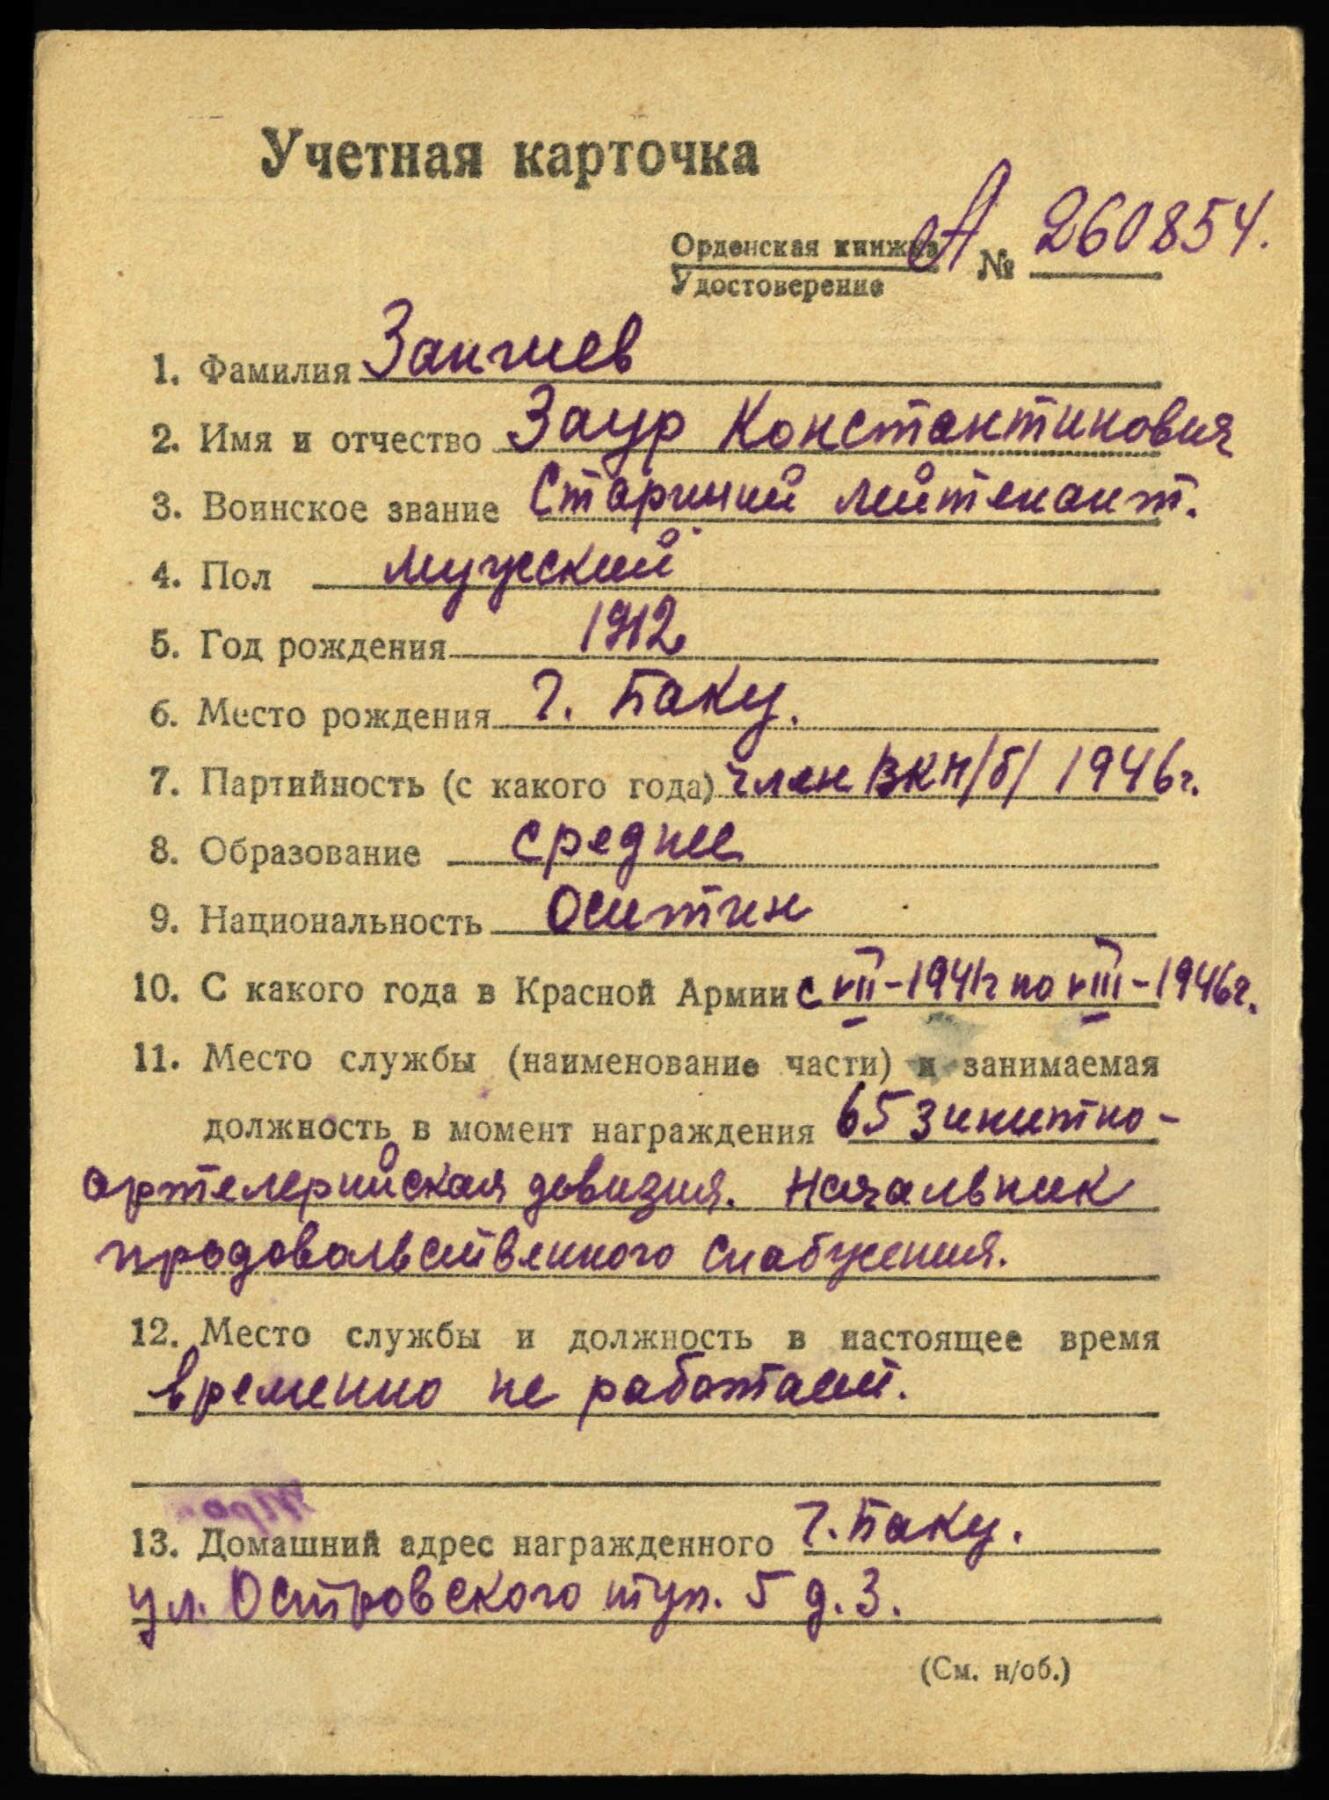 Учетная карточка
Орденская книжка А № 260854.
Удостоверение
1. Фамилия Зангиев
2. Имя и отчество Заур Константинович
3. Воинское звание Старший лейтенант.
4. Пол мужской
5. Год рождения 1912
6. Место рождения г. Баку.
7. Партийность (с какого года) член ВКП/б/ 1946г.
8. Образование среднее
9. Национальность Оситин
10. С какого года в Красной Армии с VII-1941г по VIII-1946г.
11. Место службы (наименование части) и занимаемая
должность в момент награждения 65 зинитно-
артелерийская девизия. Начальник
продовольственного снабжения.
12. Место службы и должность в настоящее время
временно не работает.
13. Домашний адрес награжденного г. Баку.
ул. Островского туп. 5 д. 3.
(См. н/об.)